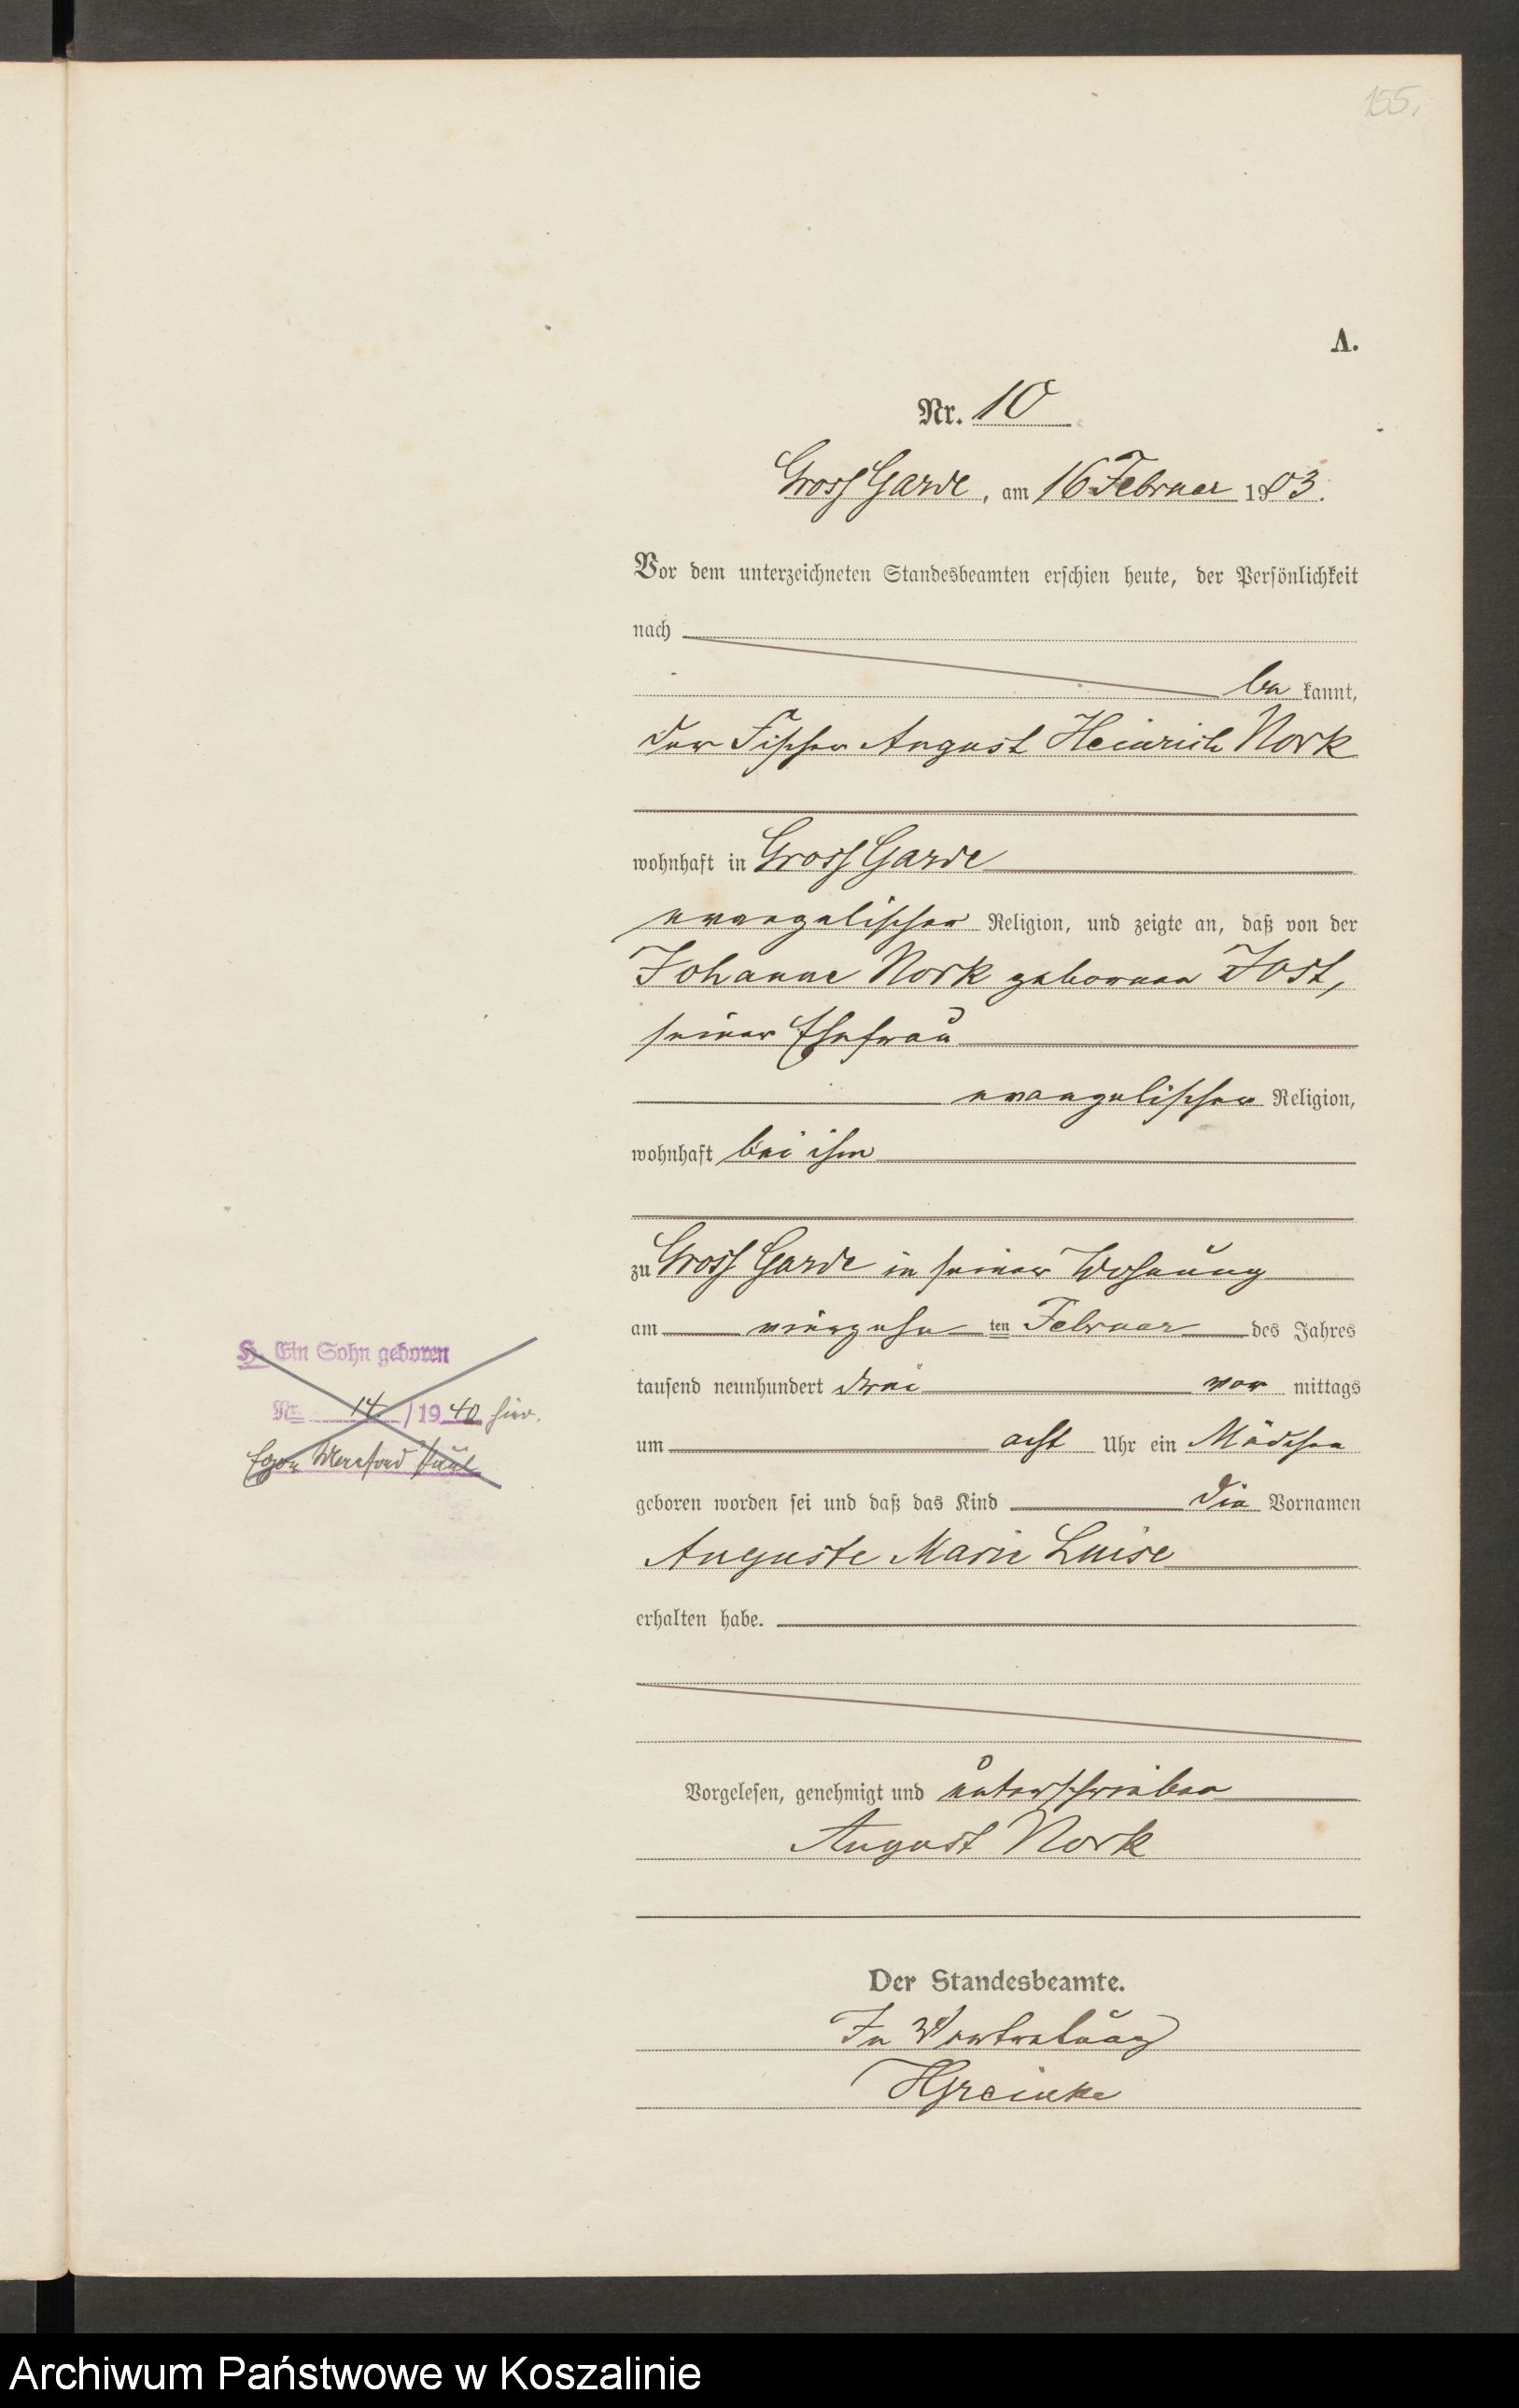 155.
A.
Nr. 10
Gross Garde, am 16 Februar 1903.
Vor dem unterzeichneten Standesbeamten erschien heute, der Persönlichkeit
nach
be kannt,
der Fischer August Heinrich Nork
wohnhaft in Gross Garde
evangelischer Religion, und zeigte an, daß von der
Johanne Nork geborenen Jost,
seiner Ehefrau
evangelischer Religion,
wohnhaft bei ihm
zu Gross Garde in seiner Wohnung
am vierzehn ten Februar des Jahres
tausend neunhundert drei vor mittags
um acht Uhr ein Mädchen
geboren worden sei und daß das Kind die Vornamen
Auguste Marie Luise
erhalten habe.
Vorgelesen, genehmigt und unterschrieben
August Nork
Der Standesbeamte.
In Vertretung
HGreinke
H. Ein Sohn geboren
Nr. 14 / 1940 hier.
Egon
Archiwum Państwowe w Koszalinie